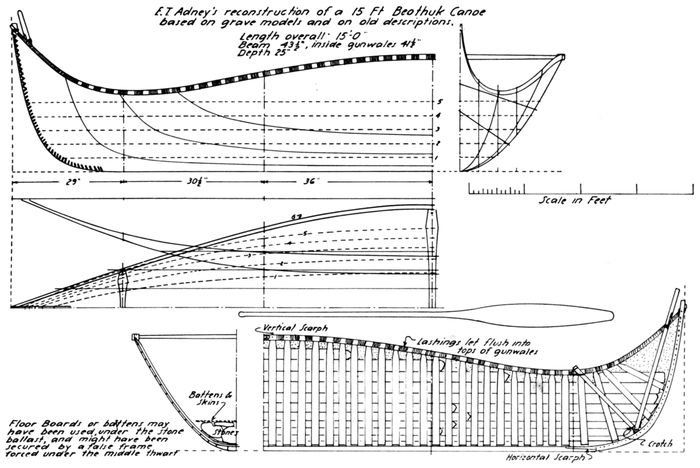 E.T. Adney's reconstruction of a 15 Ft Beothuk Canoe
based on grave models and on old descriptions.
Length overall 15'-0"
Beam 43½", inside gunwales 41½"
Depth 25"
5
4
3
2
1
29"
30½"
36"
Scale in Feet
5
4
3
2
1
Vertical Scarph
Lashings let flush into
tops of gunwales
Battens &
Skins
Stones
Floor Boards or battens may
have been used, under the stone
ballast, and might have been
secured by a false frame
forced under the middle thwart
Crotch
Horizontal Scarph